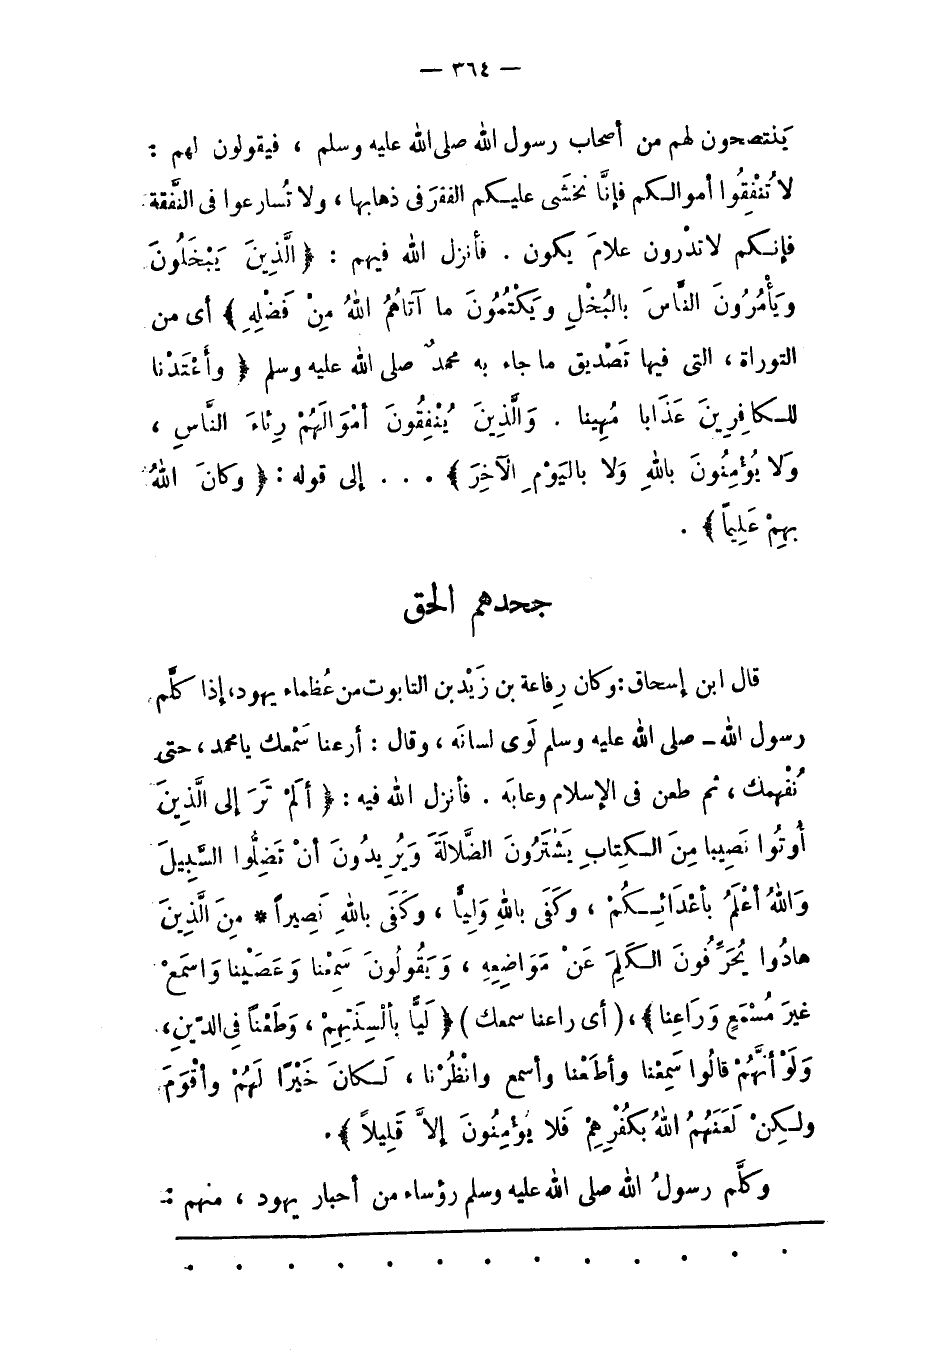 — ٣٦٤ —
يَنتصحون لهم من أصحاب رسول الله صلى الله عليه وسلم ، فيقولون لهم :
لا تُنفْقِوُا أموالـكم فإنَّا نخشَى عليـكم الفقرَ فى ذهابها ، ولا تُسارعوا فى النَّفقة
فإنـكم لاتدْرون علامَ يكون . فأنزل الله فيهم : ﴿ الَّذِينَ يَبْخَلُونَ
ويَأْمُرُونَ النَّاسَ بالبُخْلِ ويَكْتُمُونَ ما آتاهُمُ اللهُ مِنْ فَضْلِهِ ﴾ أى من
التوراة ، التى فيها تَصْديق ما جاء به محمدٌ صلى الله عليه وسلم ﴿ وأَعْتَدْنا
للـكافِرِينَ عَذَابا مُهِينا . وَالَّذِينَ يُنْفِقُونَ أمْوَالَهُمْ رِئاءَ النَّاسِ ،
وَلا يُؤْمِنُونَ باللهِ وَلا باليَوْمِ الآخِرَ ﴾ . . . إلى قوله : ﴿ وكانَ اللهُ
بهِمْ عَلِيماً ﴾ .
جحدهم الحق
قال ابن إسحاق : وكان رِفاعة بن زَيْد بن التابوت من عُظماء يهود ، إذا كلَّم
رسول الله ـ صلى الله عليه وسلم لَوى لسانَه ، وقال : أرعنا سَمْعك يا محمد ، حتى
نُفْهمك ، ثم طعن فى الإسلام وعابَه . فأنزل الله فيه : ﴿ ألَمْ تَرَ إلى الَّذِينَ
أُوتُوا نَصِيبا مِنَ الـكِتابِ يَشْتَرُونَ الضَّلالَةَ وَيُرِيدُونَ أنْ تَضِلُّوا السَّبِيلَ
وَاللهُ أعْلَمُ بأعْدَائِـكُمْ ، وكَفَى باللهِ وَلِيًّا ، وكَفَى باللهِ نَصِيراً * مِنَ الَّذِينَ
هادُوا يُحَرِّفُونَ الـكَلِمَ عَنْ مَوَاضِعِهِ ، وَيَقُولُونَ سَمِعْنا وَعَصَيْنا وَاسمَعْ
غيرَ مُسْمَعٍ وَرَاعِنا ﴾ ، ( أى راعنا سمعك ) ﴿ لَيًّا بألْسِنَتِهِمْ ، وَطَعْناً فِى الدّينِ ،
وَلَوْ أنَّهُمْ قالُوا سَمِعْنا وأطَعْنا وأسمع وانْظُرْنا ، لَـكانَ خَيْرًا لَهُمْ وأقْوَمَ
ولـكِنْ لَعَنَهُمُ اللهُ بكُفْرِهِمْ فَلا يُؤْمِنُونَ إلاَّ قَلِيلاً ﴾ .
وكلَّم رسولُ الله صلى الله عليه وسلم رؤساء من أحبار يهود ، منهم :
. . . . . . . . . . . . .